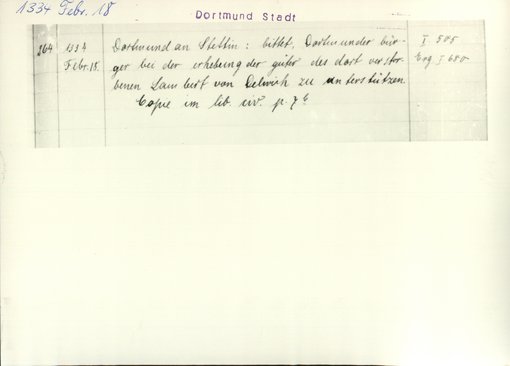 1334 Febr. 18
Dortmund Stadt
264 1334 Dortmund an Stettin: bittet, Dortmunder bür- I 505
Febr. 18. ger bei der erhebung der güter des dort verstor- Erg I 680
benen Lambert von Delwich zu unterstützen.
Copie im lib. civ. p. 7